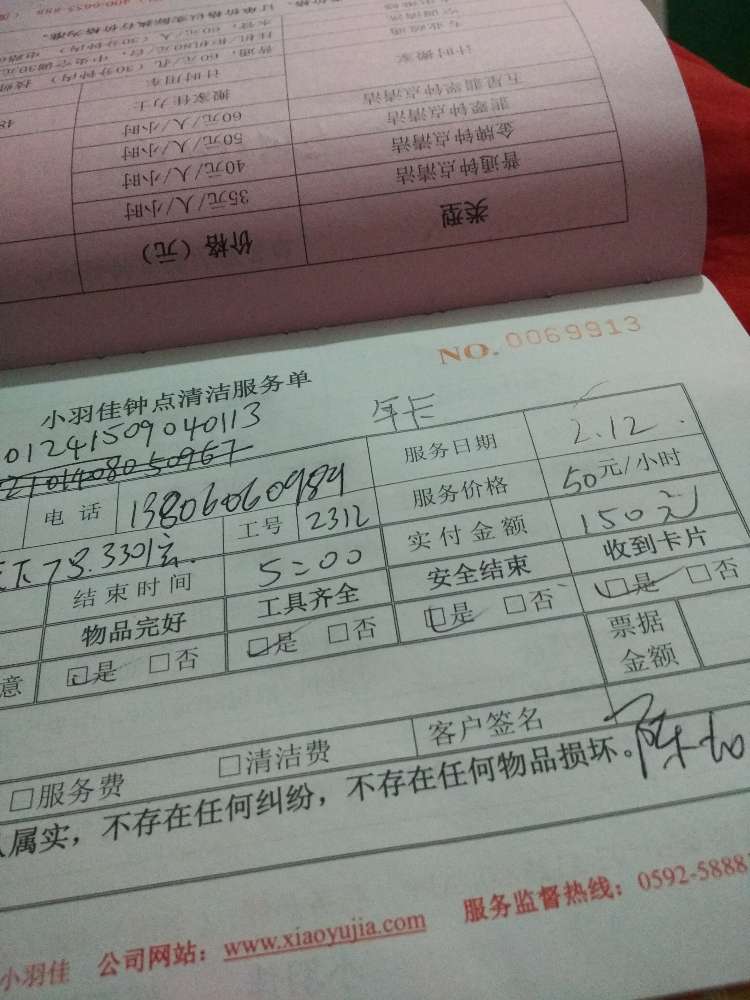 类型 价格（元）
普通钟点清洁 35元/人/小时
金牌钟点清洁 40元/人/小时
翡翠钟点清洁 50元/人/小时
五星翡翠钟点清洁 60元/人/小时
搬家佳力士
计时搬家 计时用车
NO. 0069913
小羽佳钟点清洁服务单
01241509040113 年卡
电话 13806060989 服务日期 2.12.
工号 2312 服务价格 50元/小时
结束时间 5:00 实付金额 150元
物品完好 工具齐全 安全结束 收到卡片
意 □是 □否 □是 □否 □是 □否 □是 □否
票据金额
□服务费 □清洁费 客户签名
属实，不存在任何纠纷，不存在任何物品损坏。
小羽佳 公司网站：www.xiaoyujia.com 服务监督热线：0592-58881